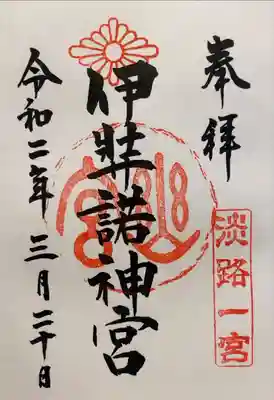 奉拝
淡路一宮
伊弉諾神宮
令和二年三月二十日